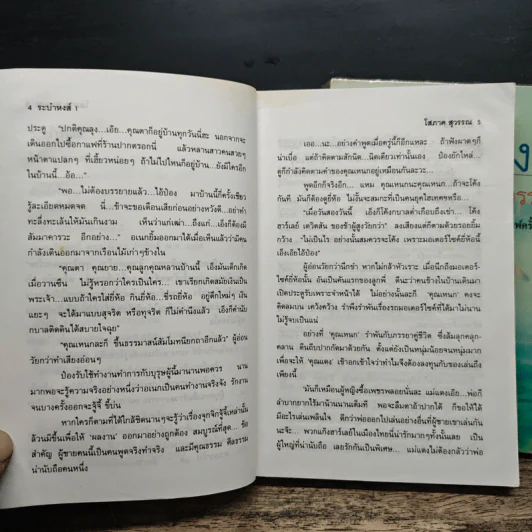 4 ระบำหงส์ 1
ประตู "ปกติคุณลุง...เอ้ย...คุณตาก็อยู่บ้านทุกวันนี่ฮะ นอกจากจะ
เดินออกไปซื้อกาแฟที่ร้านปากตรอกนี่ แล้วหลานสาวคนสวยๆ
หน้าตาแปลกๆ ที่เฮี้ยวหน่อยๆ ถ้าไม่ไปไหนก็อยู่บ้าน ยังมีใครอีก
ในบ้านนี้...อ้อ..."
"พอ...ไม่ต้องบรรยายแล้ว...ไอ้ป๋อง มาบ้านนี้กี่ครั้งเชียว
รู้ละเอียดหมดจด นี่...ข้าจะขอเตือนเสียก่อนอย่างหวังดี...อย่าทำ
ทะลึ่งทะเล้นให้มันเกินงาม เห็นว่าแก่เฒ่า...ถึงแก่...เอ็งก็ต้องมี
สัมมาคารวะ อีกอย่าง..." อเนกยิ้มออกมาได้เมื่อเห็นแล้วว่ามีคน
กำลังเดินออกมาจากเรือนไม้เก่าๆข้างใน
"คุณตา คุณยาย...คุณลูกคุณหลานบ้านนี้ เอ็งมันเด็กเกิด
เมื่อวานซืน ไม่รู้หรอกว่าใครเป็นใคร... เขาเรียกเกิดสมัยเงินเป็น
พระเจ้า...แบบถ้าใครใส่ยี่ห้อ กินยี่ห้อ...ขี่รถยี่ห้อ อยู่ตึกใหม่ๆ เงิน
แยะๆ จะได้มาแบบสุจริต หรือทุจริต ก็ไม่คำนึงแล้ว เอ็งก็คำนับ
กบาลติดดินได้สบายใจฉุย"
"คุณเหนกละก็ ขึ้นธรรมาสน์สัมโมทนียกถาอีกแล้ว" ผู้อ่อน
วัยกว่าทำเสียงอ่อนๆ
ป๋องรับใช้ทำงานทำการกับบุรุษผู้นี้มานานพอควร นาน
มากพอจะรู้ความจริงอย่างหนึ่งว่าอเนกเป็นคนทำงานจริงจัง รักงาน
จนบางครั้งออกจะจู้จี้ ขี้บ่น
หากใครก็ตามที่ได้ใกล้ชิดนานๆจะรู้ว่าเรื่องจุกจิกจู้จี้เหล่านั้น
ล้วนมีขึ้นเพื่อให้ 'ผลงาน' ออกมาอย่างถูกต้อง สมบูรณ์ที่สุด... ข้อ
สำคัญ ผู้ชายคนนี้เป็นคนพูดจริงทำจริง และมีคุณธรรม ศีลธรรม
น่านับถือคนหนึ่ง
โสภาค สุวรรณ 5
เออ...นะ...อย่างคำพูดเมื่อครู่นี้ก็อีกแหละ ถ้าฟังผาดๆก็
น่าเบื่อ แต่ถ้าคิดตามสักนิด...นิดเดียวเท่านั้นเอง ป๋องยักไหล่...
ดูก็กำลังคิดตามคำของคุณเหนกอยู่เหมือนกันละวะ
พูดอีกก็จริงอีก... แหม คุณเหนกนะคุณเหนก ถ้าจะโค้ง
ทันที มันก็ต้องดูยี่ห้อ ไม่งั้นจะสมกะที่เป็นคนยุคไฮเทคหรือ...
"เมื่อวันสองวันนี้ เอ็งก็โค้งกบาลต่ำเกือบถึงเข่า... โค้ง
ฮาร์เลย์ เดวิดสัน ของข้าผู้สูงวัยกว่า" ลงเสียงแต่ก็ตามด้วยรอยยิ้ม
กว้าง "ไม่เป็นไร อย่างนั้นสมควรจะโค้ง เพราะมอเตอร์ไซค์ยี่ห้อนี้
เอ็งเอียไอ้ป๋อง"
ผู้อ่อนวัยกว่านึกขำ หากไม่กล้าหัวเราะ เมื่อนึกถึงมอเตอร์-
ไซค์ยี่ห้อนั้น อันเป็นคันแรกของลูกพี่ ดีนะว่าคนข้างในบ้านเดินมา
เปิดประตูรับเพราะจำหน้าได้ ไม่อย่างนั้นละก็ 'คุณเหนก' คงจะ
คิดลมบน เคว้งคว้าง รำพึงรำพันเรื่องรถมอเตอร์ไซค์ที่ได้มาไม่นาน
ไม่รู้จบเป็นแน่
อย่างที่ 'คุณเหนก' รำพันกับภรรยาคู่ชีวิต ซึ่งล้มลุกคลุก-
คลาน ตีนถีบปากกัดมาด้วยกัน ตั้งแต่ยังเป็นหนุ่มน้อยจนหนุ่มมาก
เพื่อจะให้ 'คุณแดง' เข้าอกเข้าใจว่าทำไมจึงต้องลงทุนกับของเล่นถึง
เพียงนี้
'มันก็เหมือนผู้หญิงซื้อเพชรพลอยนั่นละ แม่แดงเอ๊ย...พ่อก็
ลำบากยากไร้มาบ้านนานเต็มที พอจะลืมตาอ้าปากได้ ก็ขอให้ได้
มีอะไรเล่นเพลินใจ ดีกว่าพ่อออกไปเล่นอย่างอื่นที่ผู้ชายเขาเล่นกัน
นะจ๊ะ... พวกแก๊งฮาร์เลย์ในเมืองไทยนี่น่ารักมากๆทั้งนั้นเลย เป็น
ผู้ใหญ่ที่น่านับถือ เลยรักกันเป็นพิเศษ... แม่แดงไม่ต้องกลัวว่าพ่อ